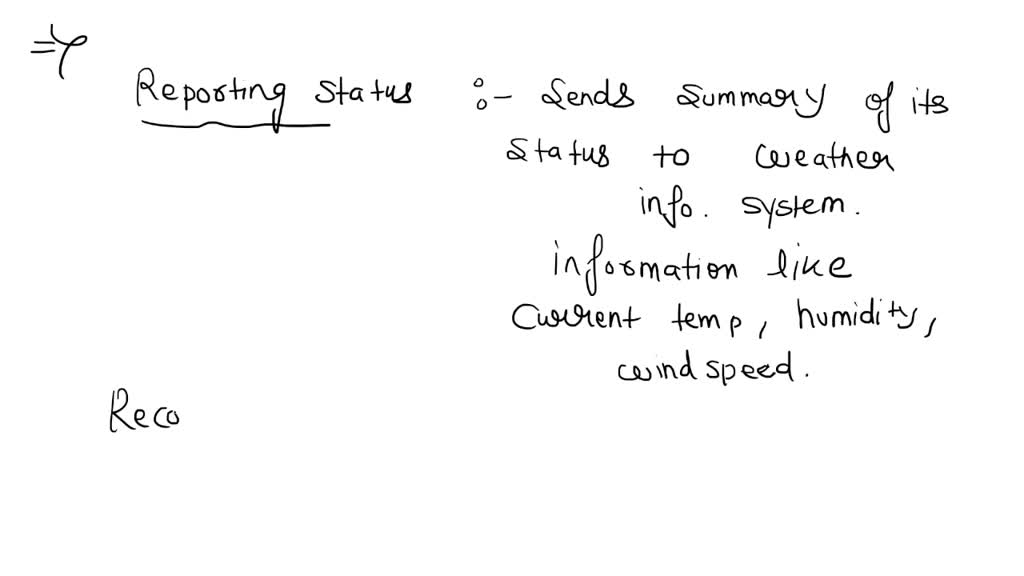 ⇒
Reporting Status :- Sends Summary of its
Status to weather
info. system.
information like
Current temp, humidity,
wind speed.
Reco